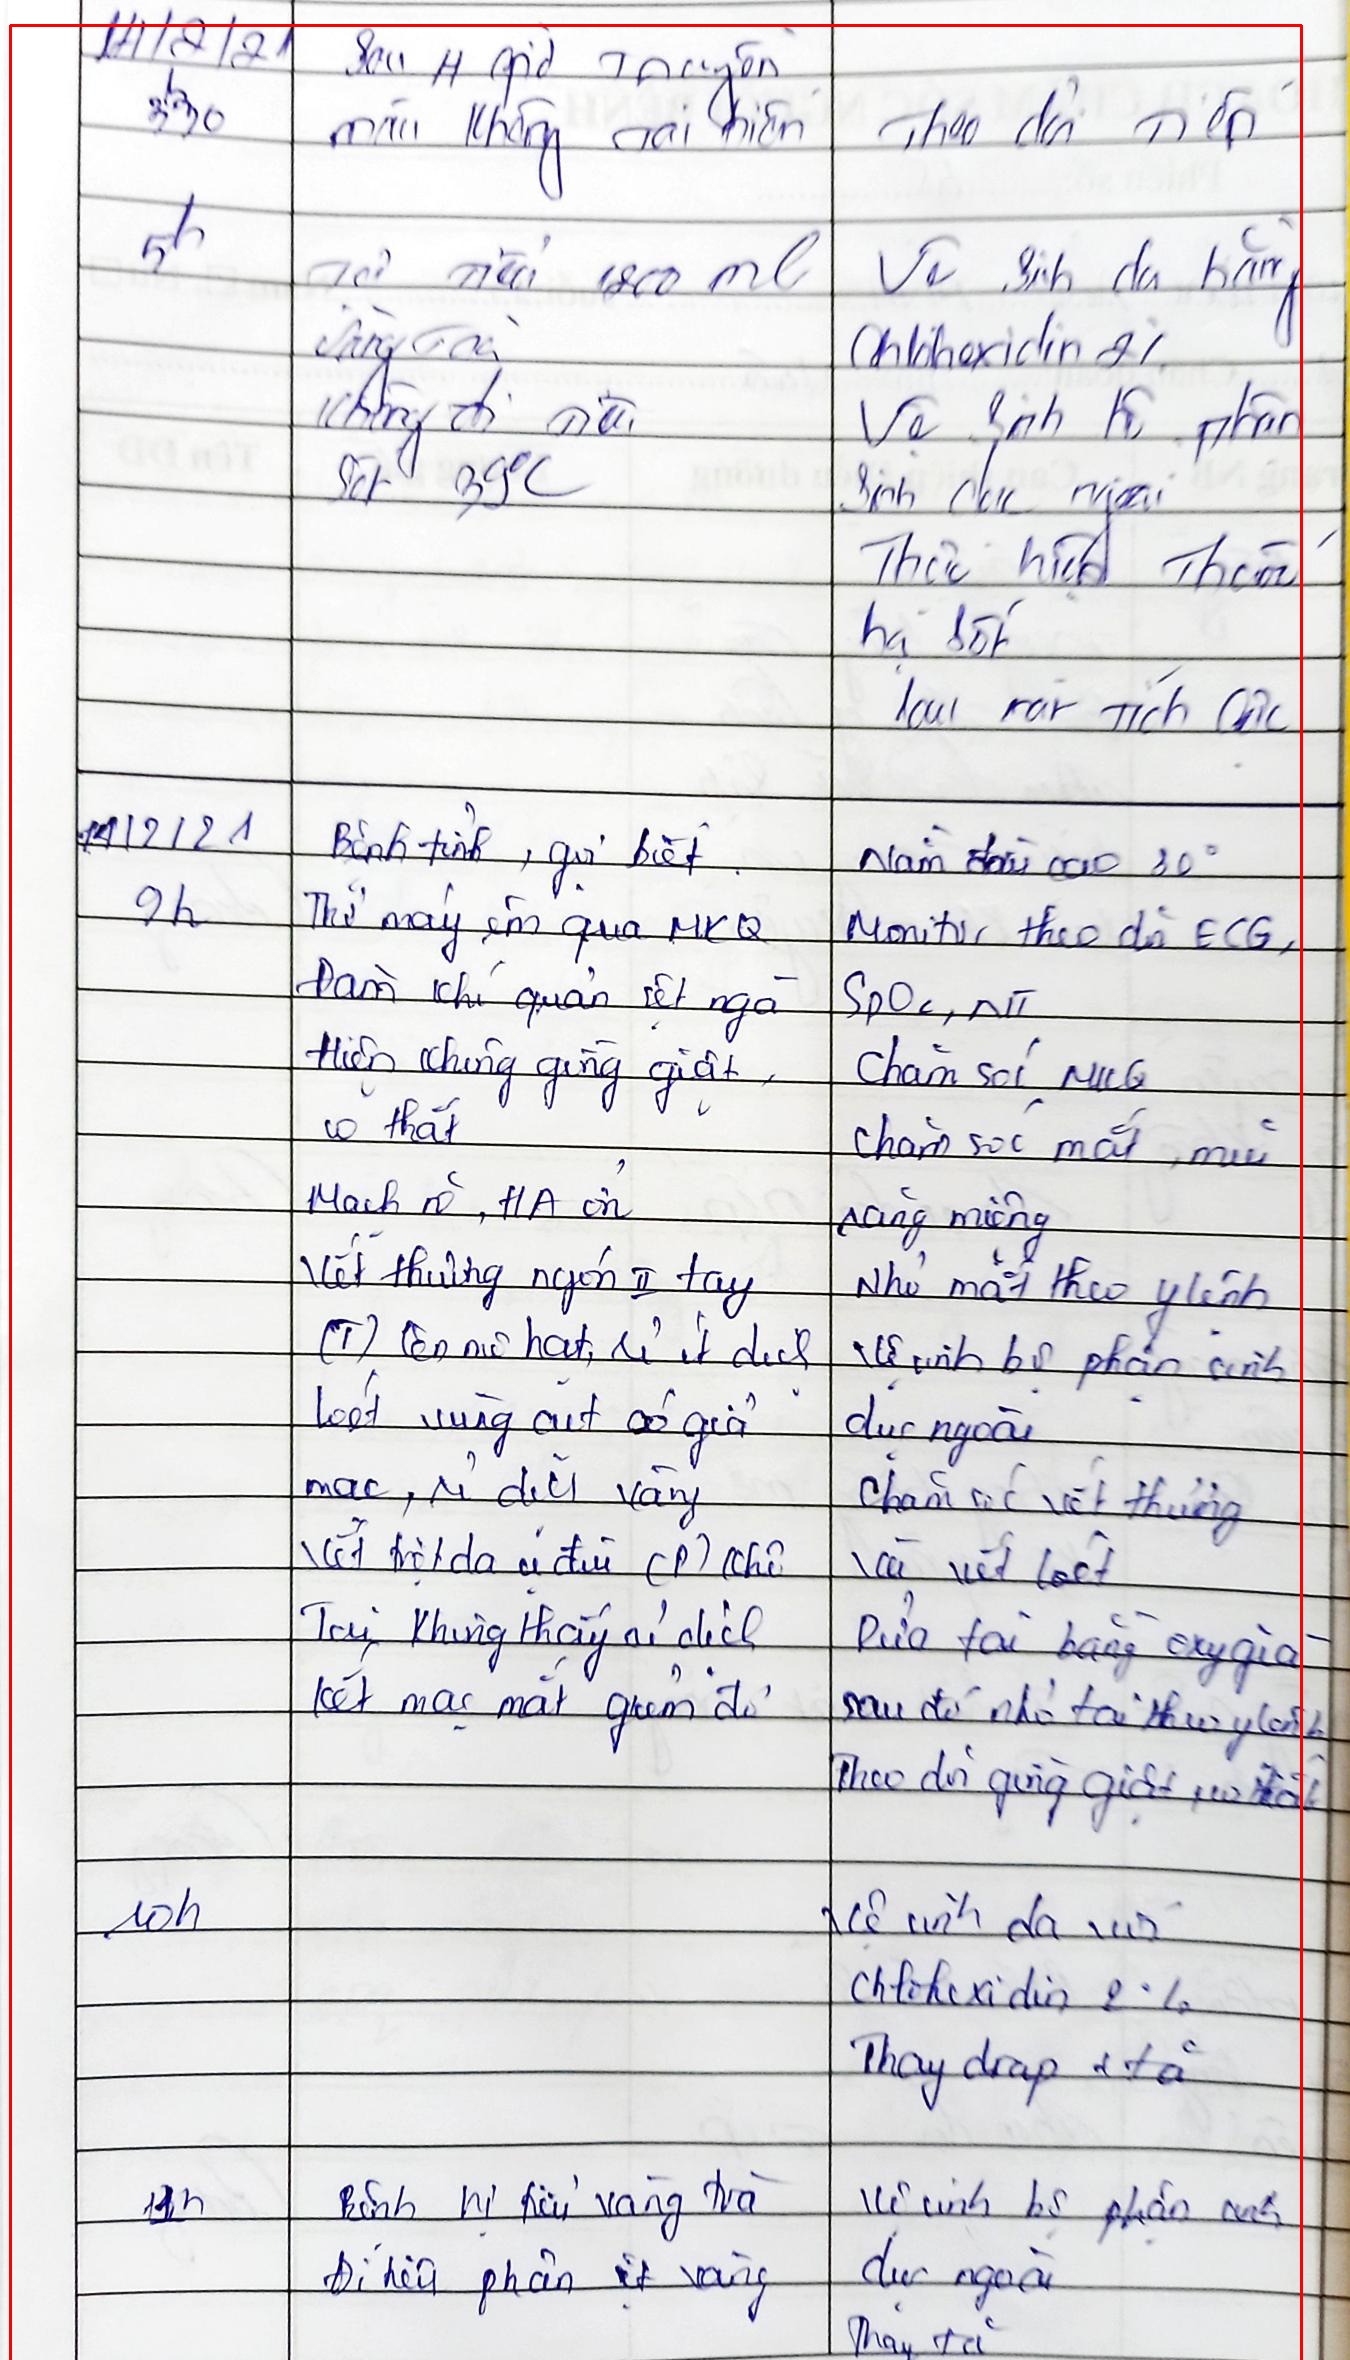 14/2/21
3h30
Sau 4 giờ Truyền
máu không tai biến
Theo dõi tiếp
5h
Tã tiểu 1200 ml
Vàng trà
Không đi tiêu
Sốt 39°C
Vệ sinh da bằng
Chlohexidin 2%
Vệ sinh bộ phận
Sinh dục ngoài
Thực hiện Thuốc
hạ sốt
lau mát Tích cực
14/2/21
9h
Bệnh tỉnh, gọi biết
Thở máy êm qua MKQ
Đàm khí quản sệt ngà
Hiện không gồng giật,
co thắt
Mạch rõ, HA ổn
Vết thương ngón II tay
(T) lên mô hạt, rỉ ít dịch
Loét vùng cụt có giả
mạc, rỉ dịch vàng
Vết trợt da ở đùi (P) khô
Tai không thấy rỉ dịch
Kết mạc mắt giảm đỏ
Nằm đầu cao 30°
Monitor theo dõi ECG,
SpO2, NT
Chăm sóc MKQ
Chăm sóc mắt, mũi
răng miệng
Nhỏ mắt theo y lệnh
Vệ sinh bộ phận sinh
dục ngoài
Chăm sóc vết thương
và vết loét
Rửa tai bằng oxy già
sau đó nhỏ tai theo y lệnh
Theo dõi gồng giật, co thắt
10h
Vệ sinh da với
Chlohexidin 2%
Thay drap + tã
11h
Bệnh tiểu vàng trà
Đi tiêu phân sệt vàng
Vệ sinh bộ phận sinh
dục ngoài
Thay tã